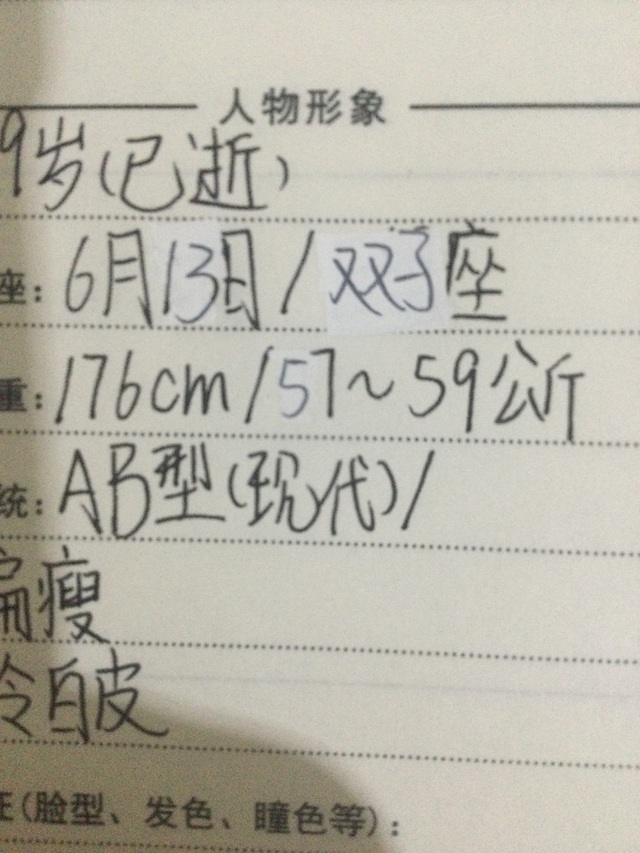 人物形象
9岁(已逝)
座: 6月13日/双子座
重: 176cm/57~59公斤
统: AB型(现代)/
扁瘦
冷白皮
征(脸型、发色、瞳色等):